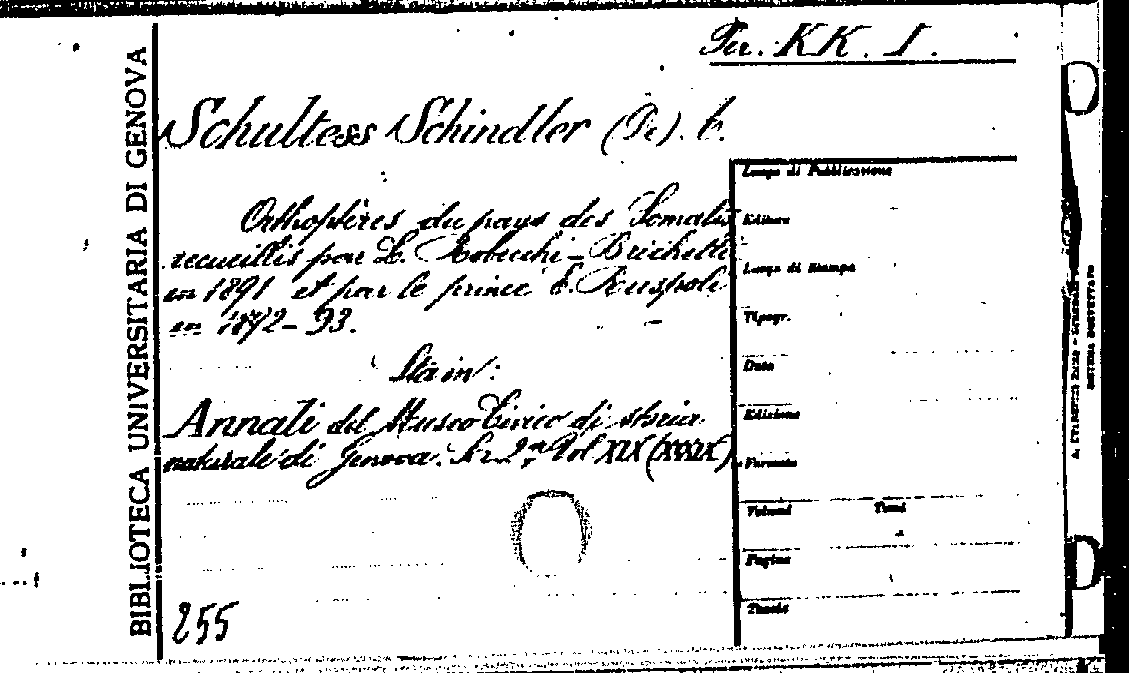 Per. KK. I.
BIBLIOTECA UNIVERSITARIA DI GENOVA
Schultess Schindler (De). A.
Orthoptères du pays des Somalis
recueillis par L. Robecchi-Brichetti
en 1891 et par le prince E. Ruspoli
en 1892-93.
Sta in:
Annali del Museo Civico di storia
naturale di Genova. Sr. 2a Vol XIX (XXXIX)
255
Luogo di Pubblicazione
Editore
Luogo di Stampa
Tipogr.
Data
Edizione
Formato
Volumi Tomi
Pagine
Tavole